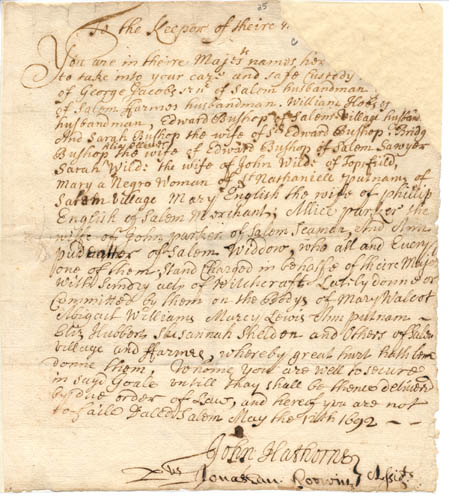 25
To the Keeper of theire
You are in theire Majest's names her
to take into your care and safe Custody
of George Jacobs sen'r of Salem husbandman
of Salem Farmes husbandman, William Hobs
husbandman, Edward Bushop of Salem Village husban
And Sarah Bushop the wife of s'd Edward Bushop: Bridg
Bushop the wife of Edward Bushop of Salem Sawyer
Sarah Wild: the wife of John Wild: of Topsfeild,
Mary a Negro Woman of s't Nathaniell putnams of
Salem Village Mary English the wife of phillip
English of Salem Merchant; Allice parker the
wife of John parker of Salem Seaman, And Ann
pudeatter of Salem Widdow, who all and Every
one of them, Stand Charged in behalfe of theire Majes
with Sundry acts of Witchcraft Lately donne or
Committed by them on the bodys of Mary Walcot
Abigail Williams Marcy Lewis Ann putnam
Eliz Hubbert, Susannah Sheldon and Others of Salem
village and Farmes, whereby great hurt hath been
donne them, Whome You are well to secure
in said Goale untill thay shall be thence delivered
by due order of Law, and hereof you are not
to faile Dated Salem May the 12th 1692
John Hathorne
Jonathan Corwin Assists